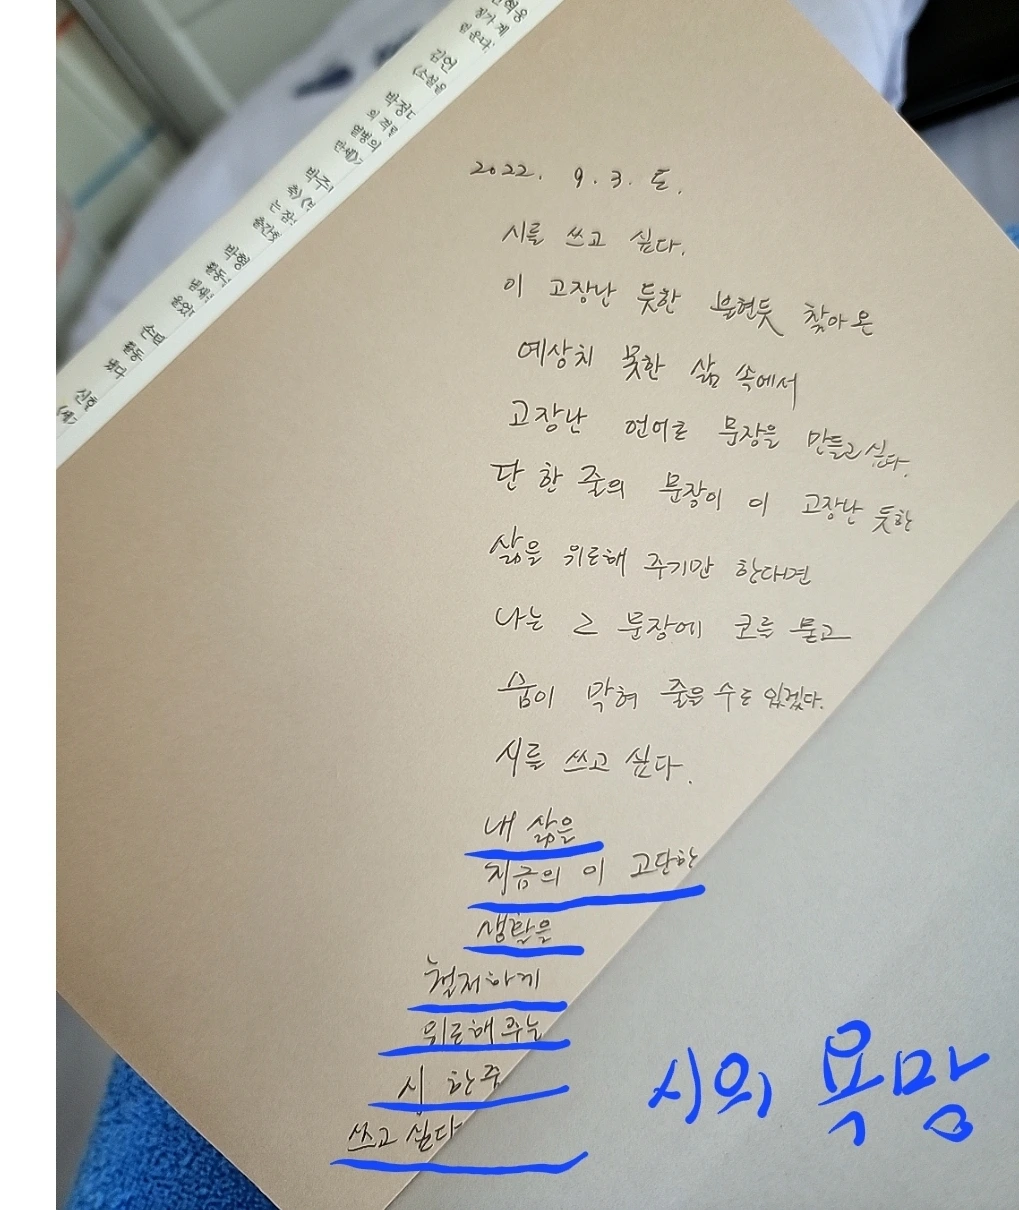 김언
박형
2022. 9. 3. 토.
시를 쓰고 싶다.
이 고장난 듯한 불현듯 찾아온
예상치 못한 삶 속에서
고장난 언어로 문장을 만들고 싶다.
단 한 줄의 문장이 이 고장난 듯한
삶을 위로해 주기만 한다면
나는 그 문장에 코를 묻고
숨이 막혀 죽을 수도 있겠다.
시를 쓰고 싶다.
내 삶을
지금의 이 고단한
생활을
철저하게
위로해 주는
시 한 줄
쓰고 싶다
시의 욕망